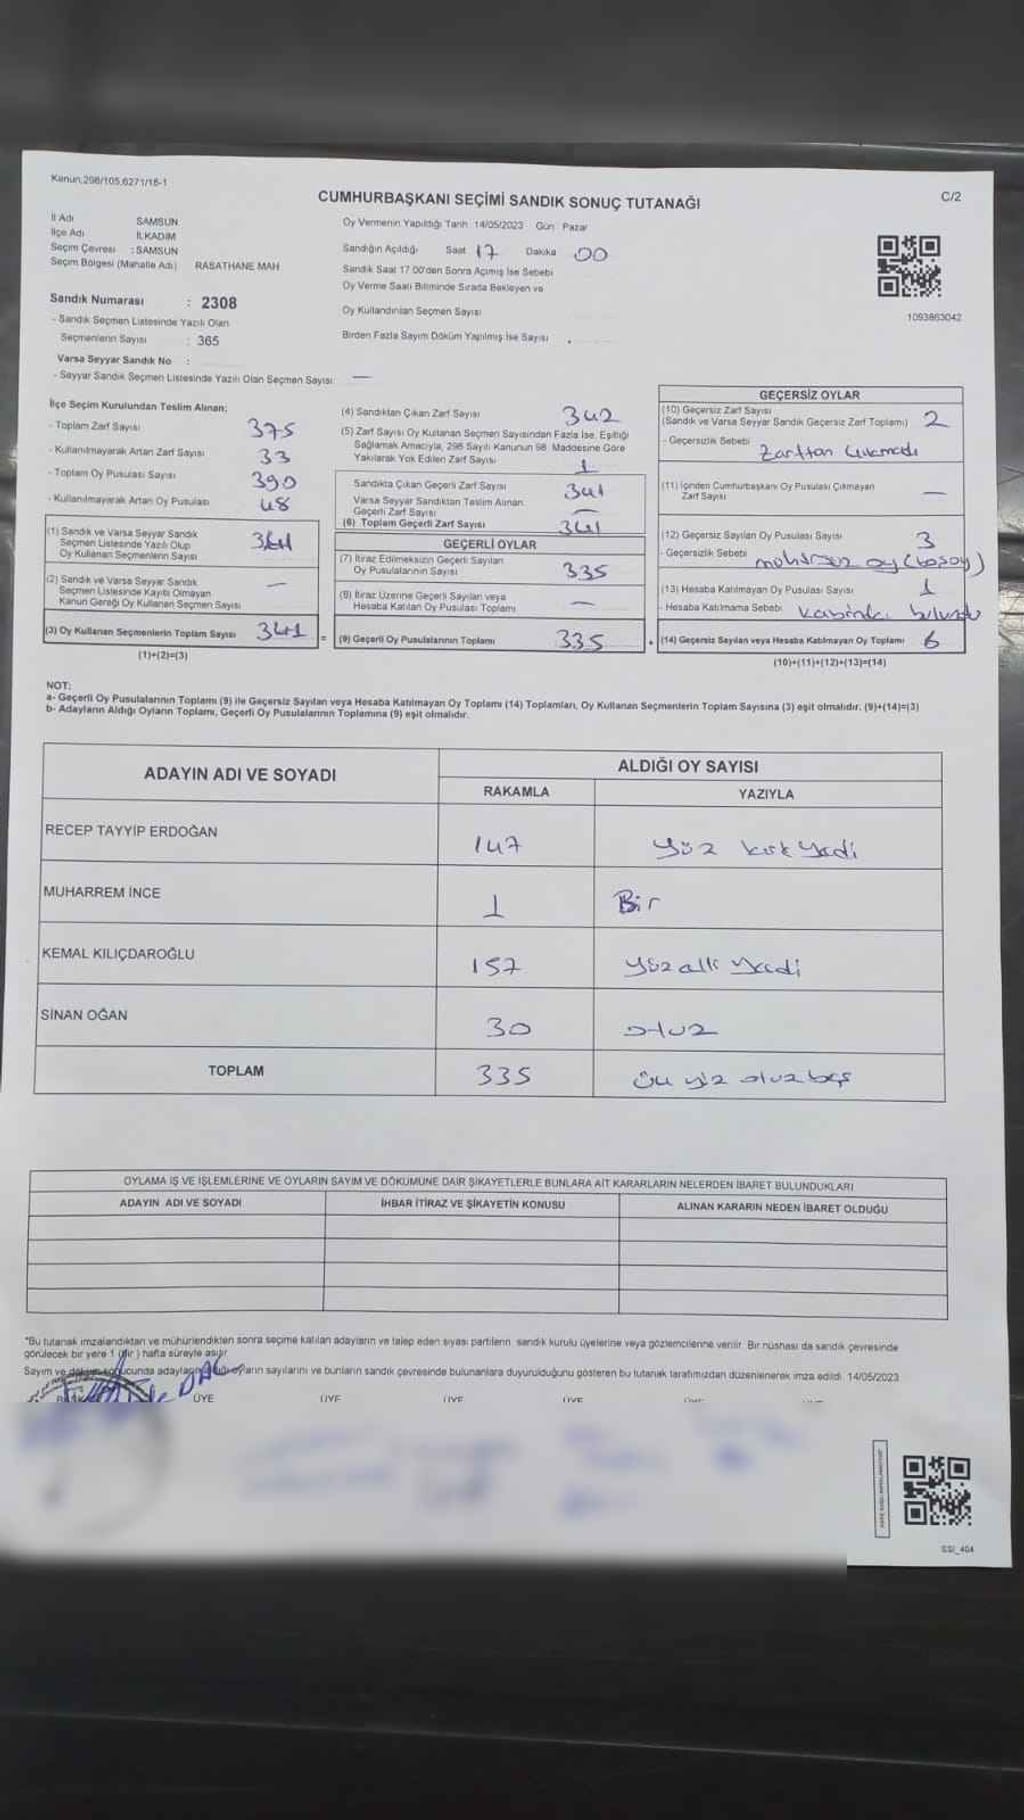 Kanun,298/105,6271/16-1
C/2
CUMHURBAŞKANI SEÇİMİ SANDIK SONUÇ TUTANAĞI
İl Adı SAMSUN
İlçe Adı İLKADIM
Seçim Çevresi : SAMSUN
Seçim Bölgesi (Mahalle Adı) RASATHANE MAH
Sandık Numarası : 2308
- Sandık Seçmen Listesinde Yazılı Olan
Seçmenlerin Sayısı : 365
Varsa Seyyar Sandık No :
- Seyyar Sandık Seçmen Listesinde Yazılı Olan Seçmen Sayısı: —
Oy Vermenin Yapıldığı Tarih 14/05/2023 Gün Pazar
Sandığın Açıldığı Saat 17 Dakika 00
Sandık Saat 17 00'den Sonra Açımış İse Sebebi
Oy Verme Saati Bitiminde Sırada Bekleyen ve
Oy Kullandırılan Seçmen Sayısı
Birden Fazla Sayım Döküm Yapılmış İse Sayısı
1093863042
İlçe Seçim Kurulundan Teslim Alınan;
- Toplam Zarf Sayısı 375
- Kullanılmayarak Artan Zarf Sayısı 33
- Toplam Oy Pusulası Sayısı 390
- Kullanılmayarak Artan Oy Pusulası 48
(1) Sandık ve Varsa Seyyar Sandık
Seçmen Listesinde Yazılı Olup
Oy Kullanan Seçmenlerin Sayısı 341
(2) Sandık ve Varsa Seyyar Sandık
Seçmen Listesinde Kayıtlı Olmayan
Kanun Gereği Oy Kullanan Seçmen Sayısı —
(3) Oy Kullanan Seçmenlerin Toplam Sayısı 341 =
(1)+(2)=(3)
(4) Sandıktan Çıkan Zarf Sayısı 342
(5) Zarf Sayısı Oy Kullanan Seçmen Sayısından Fazla İse, Eşitliği
Sağlamak Amacıyla, 298 Sayılı Kanunun 98. Maddesine Göre
Yakılarak Yok Edilen Zarf Sayısı 1
Sandıkta Çıkan Geçerli Zarf Sayısı 341
Varsa Seyyar Sandıktan Teslim Alınan
Geçerli Zarf Sayısı —
(6) Toplam Geçerli Zarf Sayısı 341
GEÇERLİ OYLAR
(7) İtiraz Edilmeksizin Geçerli Sayılan
Oy Pusulalarının Sayısı 335
(8) İtiraz Üzerine Geçerli Sayılan veya
Hesaba Katılan Oy Pusulası Toplamı —
(9) Geçerli Oy Pusulalarının Toplamı 335 +
GEÇERSİZ OYLAR
(10) Geçersiz Zarf Sayısı
(Sandık ve Varsa Seyyar Sandık Geçersiz Zarf Toplamı) 2
- Geçersizlik Sebebi Zarftan Çıkmadı
(11) İçinden Cumhurbaşkanı Oy Pusulası Çıkmayan
Zarf Sayısı —
(12) Geçersiz Sayılan Oy Pusulası Sayısı 3
- Geçersizlik Sebebi mühürsüz oy (boşoy)
(13) Hesaba Katılmayan Oy Pusulası Sayısı 1
- Hesaba Katılmama Sebebi Kabinde bulundu
(14) Geçersiz Sayılan veya Hesaba Katılmayan Oy Toplamı 6
(10)+(11)+(12)+(13)=(14)
NOT:
a- Geçerli Oy Pusulalarının Toplamı (9) ile Geçersiz Sayılan veya Hesaba Katılmayan Oy Toplamı (14) Toplamları, Oy Kullanan Seçmenlerin Toplam Sayısına (3) eşit olmalıdır. (9)+(14)=(3)
b- Adayların Aldığı Oyların Toplamı, Geçerli Oy Pusulalarının Toplamına (9) eşit olmalıdır.
ADAYIN ADI VE SOYADI ALDIĞI OY SAYISI
RAKAMLA YAZIYLA
RECEP TAYYİP ERDOĞAN 147 Yüz kırk Yedi
MUHARREM İNCE 1 Bir
KEMAL KILIÇDAROĞLU 157 Yüz elli Yedi
SİNAN OĞAN 30 otuz
TOPLAM 335 Üç yüz otuz beş
OYLAMA İŞ VE İŞLEMLERİNE VE OYLARIN SAYIM VE DÖKÜMÜNE DAİR ŞİKAYETLERLE BUNLARA AİT KARARLARIN NELERDEN İBARET BULUNDUKLARI
ADAYIN ADI VE SOYADI İHBAR İTİRAZ VE ŞİKAYETİN KONUSU ALINAN KARARIN NEDEN İBARET OLDUĞU
*Bu tutanak imzalandıktan ve mühürlendikten sonra seçime katılan adayların ve talep eden siyasi partilerin sandık kurulu üyelerine veya gözlemcilerine verilir. Bir nüshası da sandık çevresinde
görülecek bir yere 1 (Bir) hafta süreyle asılır
Sayım ve döküm sonucunda adayların aldığı oyların sayılarını ve bunların sandık çevresinde bulunanlara duyurulduğunu gösteren bu tutanak tarafımızdan düzenlenerek imza edildi 14/05/2023
ÜYE ÜYE ÜYE ÜYE
SSI_404